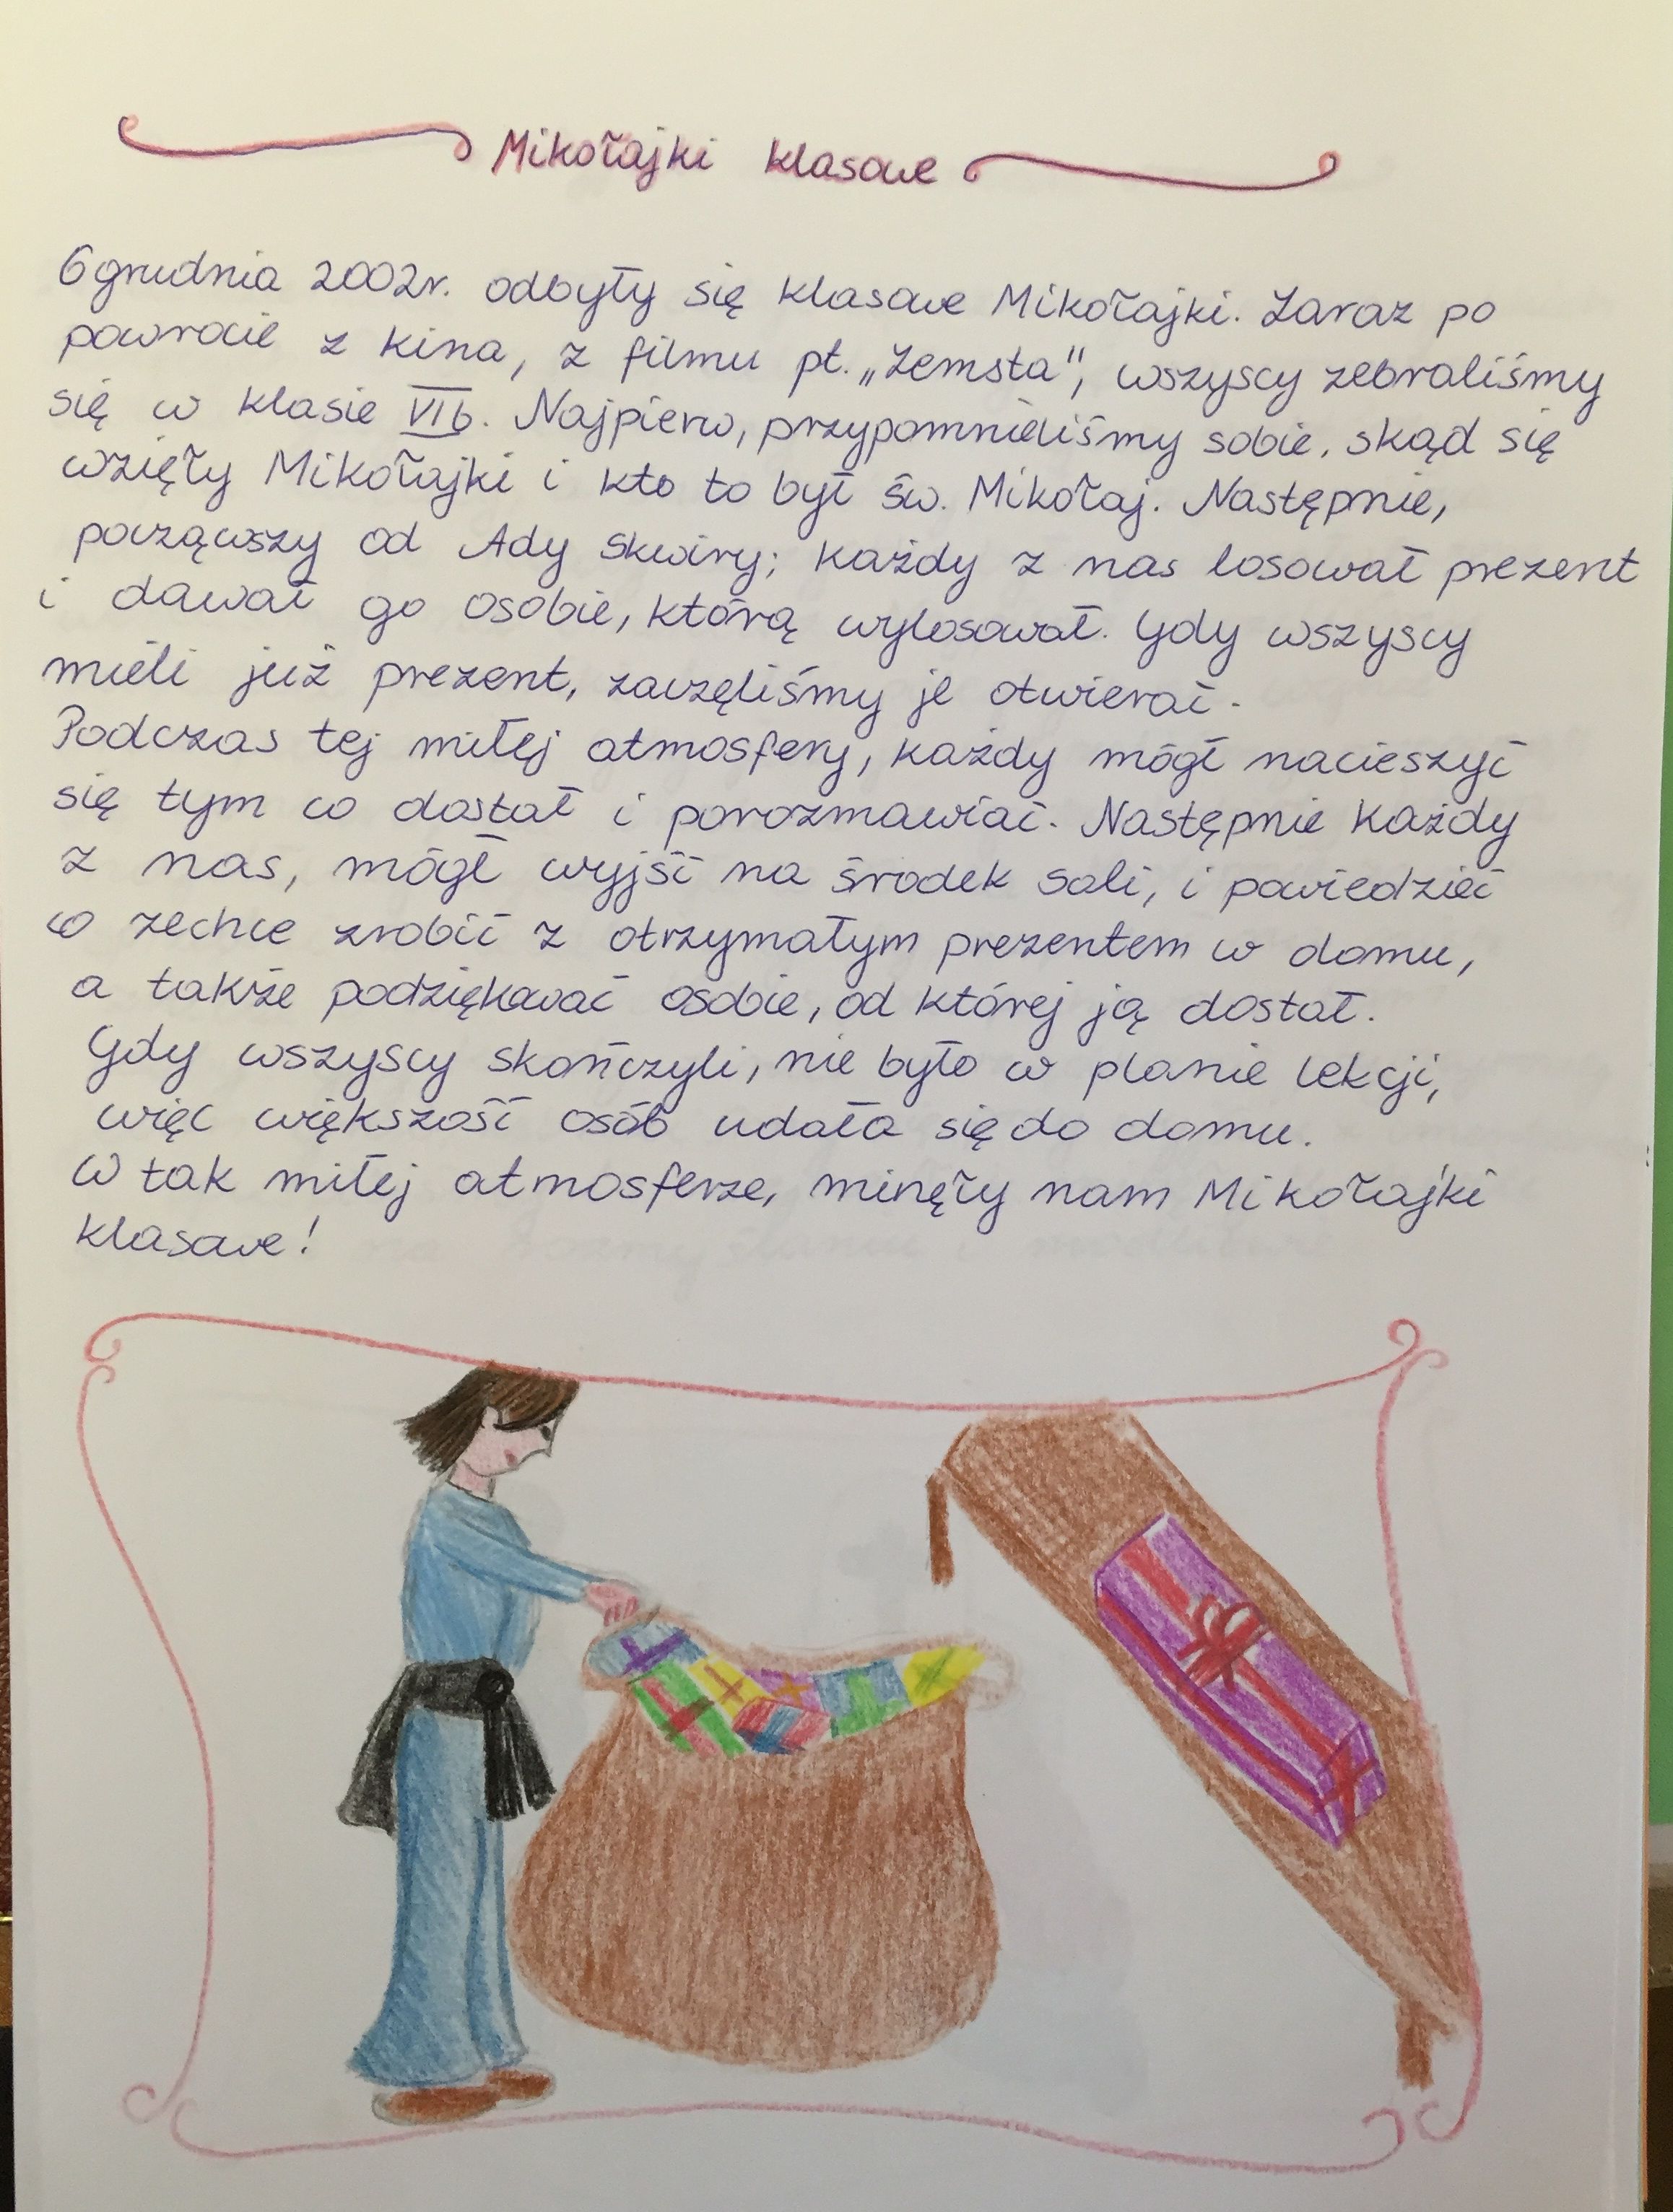 Mikołajki klasowe
6 grudnia 2002r. odbyły się klasowe Mikołajki. Zaraz po
powrocie z kina, z filmu pt. „Zemsta", wszyscy zebraliśmy
się w klasie VI b. Najpierw, przypomnieliśmy sobie, skąd się
wzięły Mikołajki i kto to był św. Mikołaj. Następnie,
począwszy od Ady Skwiry; każdy z nas losował prezent
i dawał go osobie, którą wylosował. Gdy wszyscy
mieli już prezent, zaczęliśmy je otwierać.
Podczas tej miłej atmosfery, każdy mógł nacieszyć
się tym co dostał i porozmawiać. Następnie każdy
z nas, mógł wyjść na środek sali, i powiedzieć
co zechce zrobić z otrzymałym prezentem w domu,
a także podziękować osobie, od której ją dostał.
Gdy wszyscy skończyli, nie było w planie lekcji,
więc większość osób udała się do domu.
W tak miłej atmosferze, minęły nam Mikołajki
klasowe!